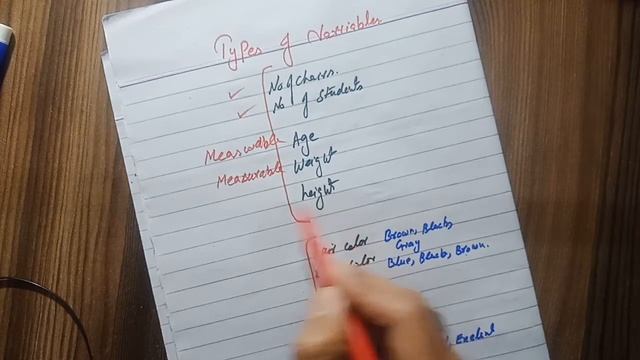 Types of Variables
No of Chairs.
No of Students
Measurable Age
Measurable Weight
height
color Brown, Black,
Gray
color Blue, Black, Brown.